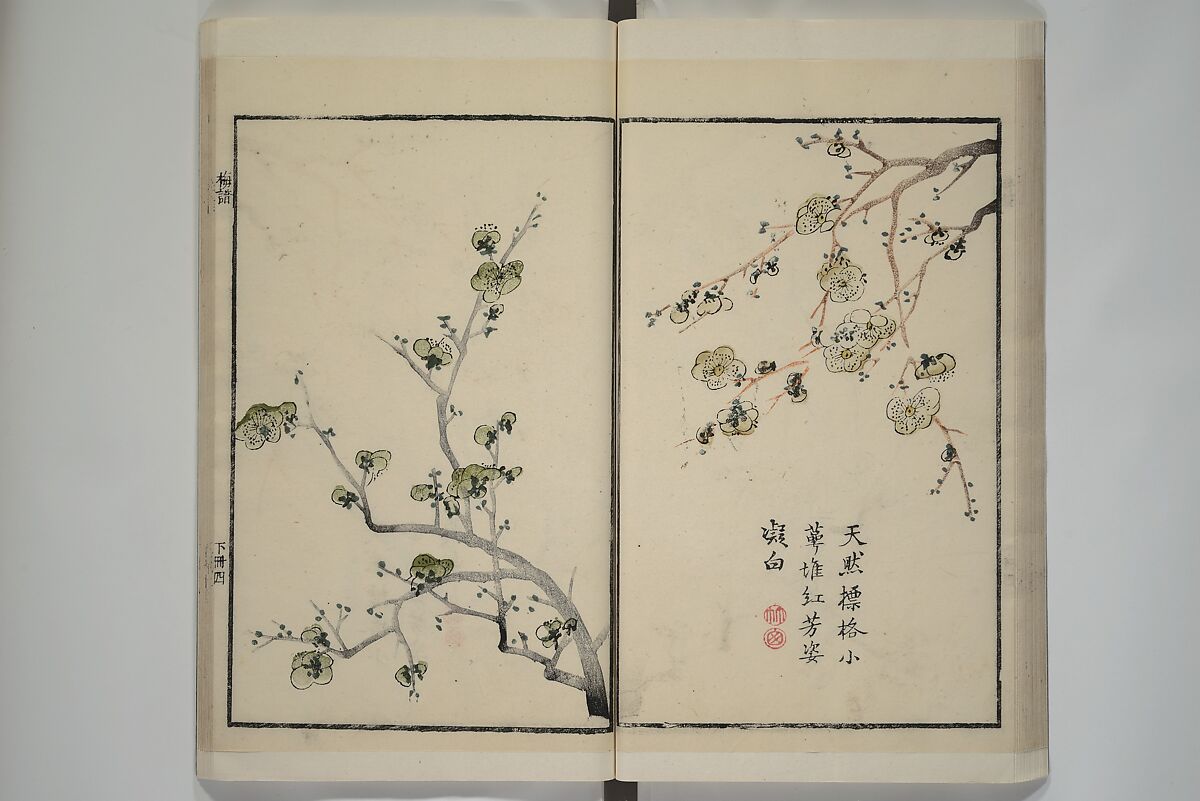 天然標格小
萼堆紅芳姿
凝白
梅譜
下冊四